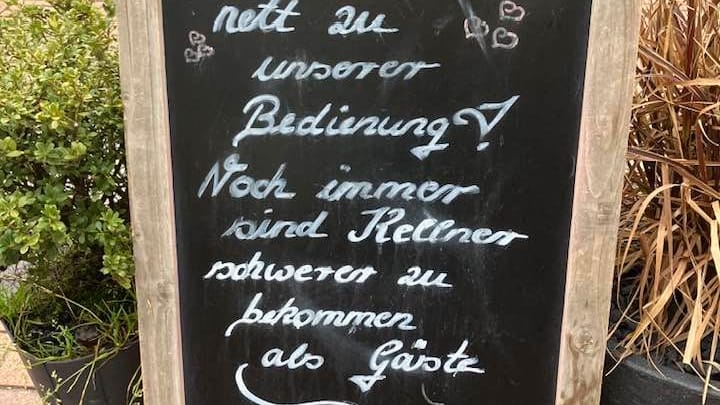 nett zu
unserer
Bedienung!
Noch immer
sind Kellner
schwerer zu
bekommen
als Gäste